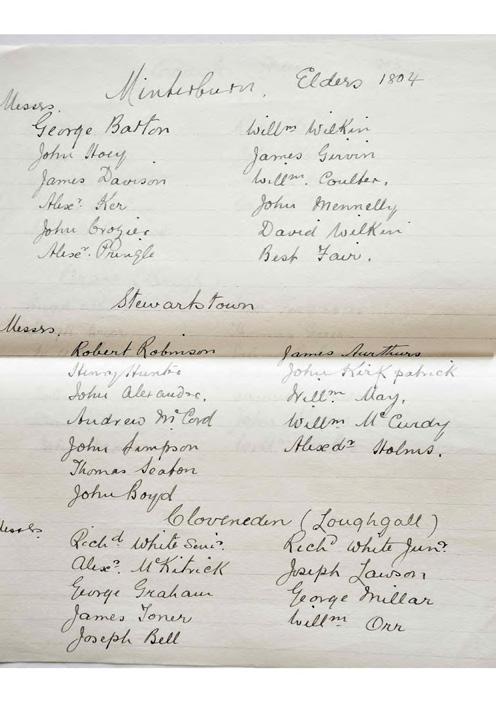 Minterburn. Elders 1804
Messrs.
George Barton Willm Wilkin
John Hoey James Girvin
James Davison Willm. Coulter.
Alexr. Ker John Mennelly
John Crozier David Wilkin
Alexr. Pringle Best Fair.
Stewartstown
Messrs.
Robert Robinson James Aurthurs
Henry Hunter John Kirkpatrick
John Alexander. Willm May,
Andrew McCord Willm McCurdy
John Simpson Alexdr Holms.
Thomas Seaton
John Boyd
Cloveneden (Loughgall)
Messrs
Richd White Senr. Richd White Junr.
Alexr. McKitrick Joseph Lawson
George Graham George Millar
James Toner Willm Orr
Joseph Bell